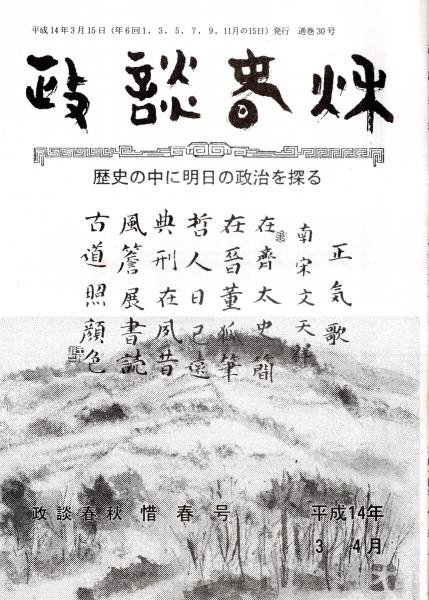 平成14年3月15日(年6回1,3,5,7,9,11月の15日)発行 通巻30号
政談春秋
歴史の中に明日の政治を探る
正気歌
南宋文天祥
在齊太史簡
在晉董狐筆
哲人日已遠
典刑在夙昔
風簷展書読
古道照顔色
政談春秋 惜春号 平成14年
3 4月